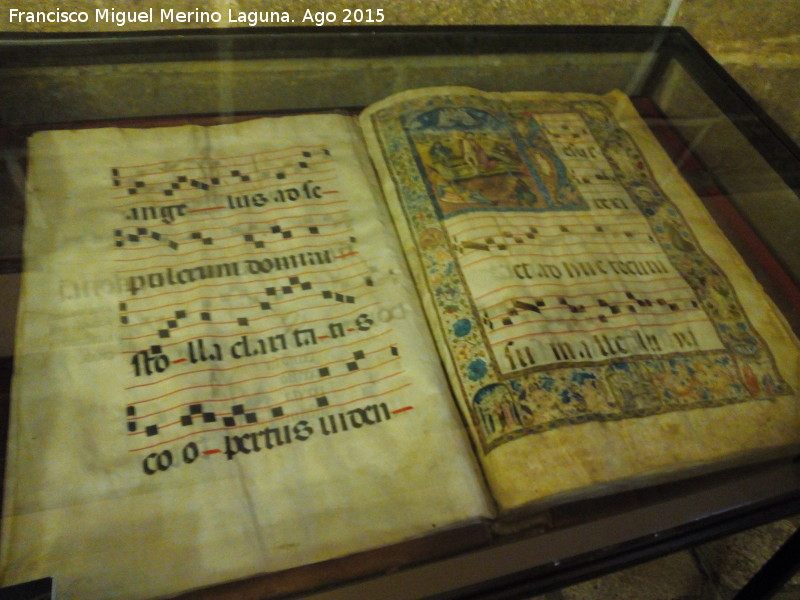 Francisco Miguel Merino Laguna. Ago 2015
ange lus ad se
pulcrum domini
sto-lla clari ta-ti-s
co o-pertus viden
et ad huc tecum
su m alle lu